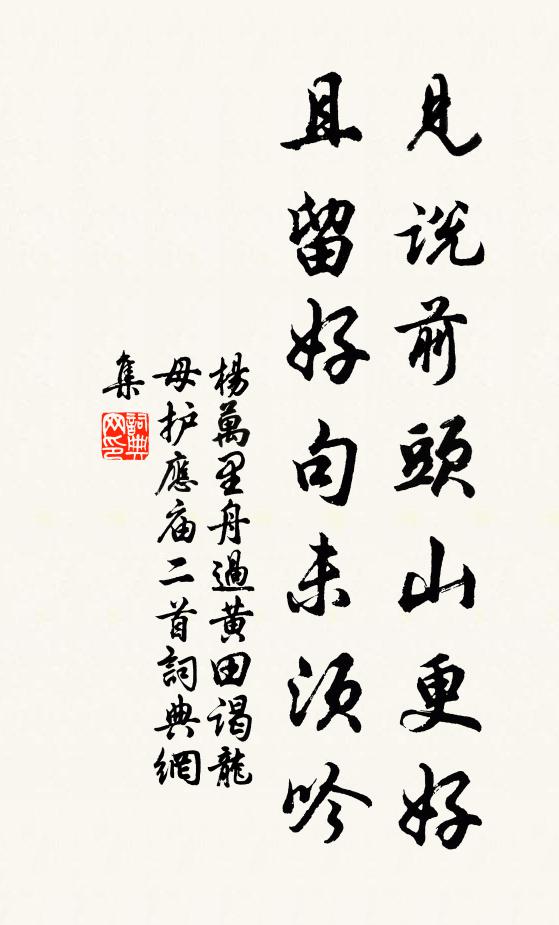 見説前頭山更好
且留好句未須吟
楊萬里舟過黃田谒龍
母护應庙二首詞典網
集
詞典網印